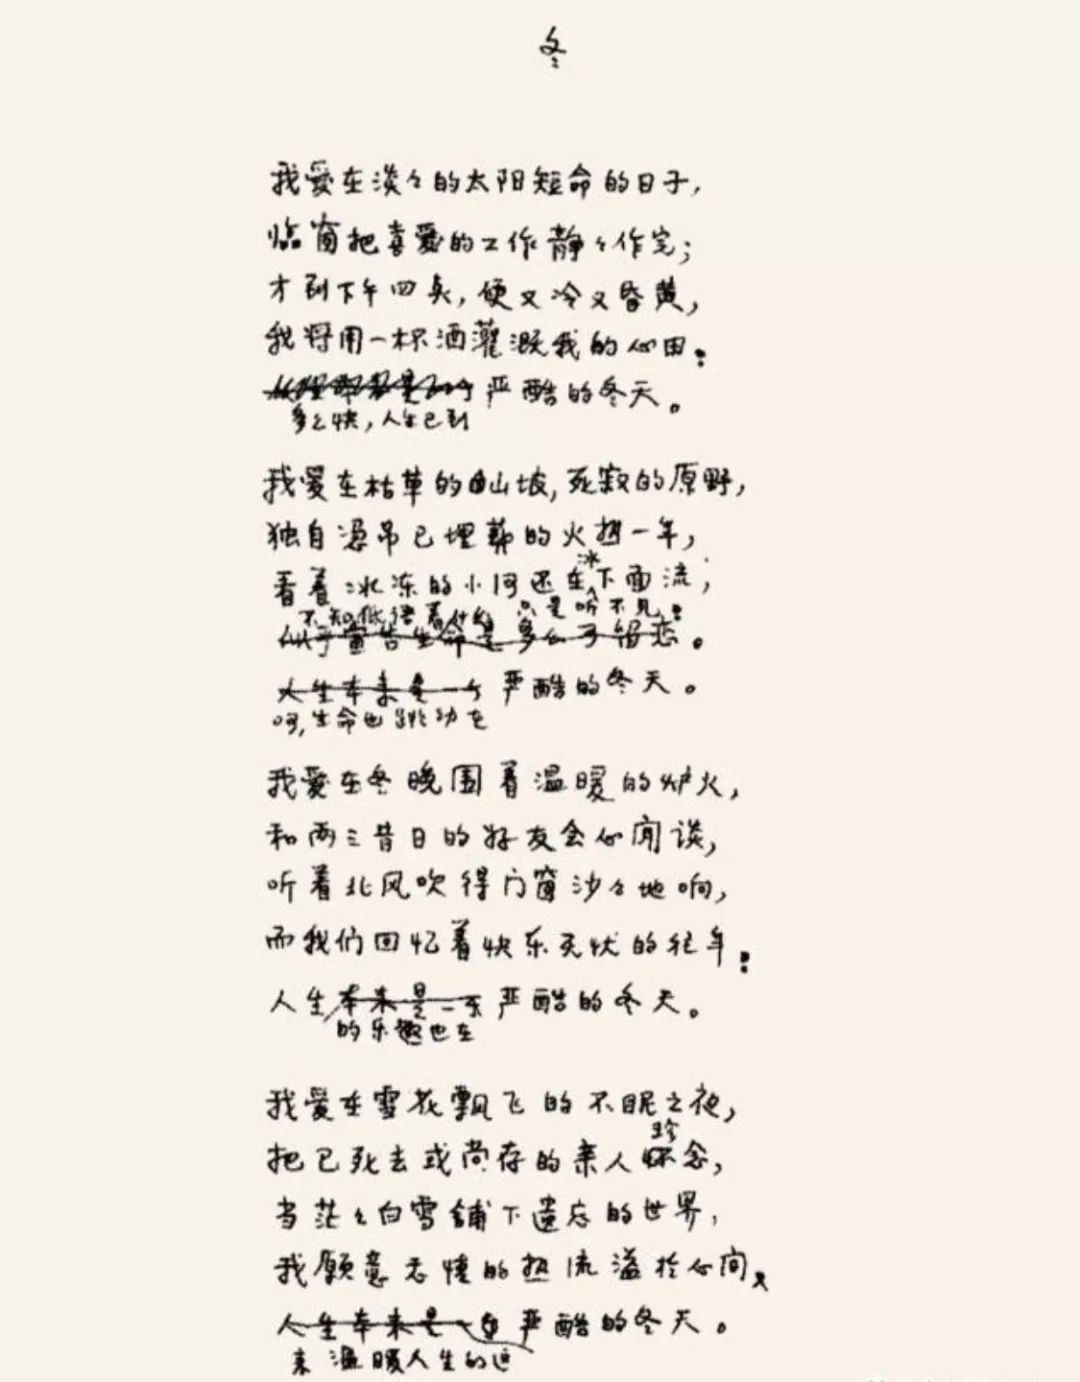 冬
我爱在淡々的太阳短命的日子,
临窗把喜爱的工作静々作完;
才到下午四点,便又冷又昏黄,
我将用一杯酒灌溉我的心田:
严酷的冬天。
多么快,人生已到
我爱在枯草的山坡,死寂的原野,
独自凭吊已埋葬的火热一年,
冰
看着冰冻的小河还在下面流,
不知低语着什么 只是听不见:
似乎宣告生命是多么可留恋。
人生本来是一个严酷的冬天。
呵,生命也跳动在
我爱在冬晚围着温暖的炉火,
和两三昔日的好友会心闲谈,
听着北风吹得门窗沙々地响,
而我们回忆着快乐无忧的往年:
人生本来是一个严酷的冬天。
的乐趣也在
我爱在雪花飘飞的不眠之夜,
珍
把已死去或尚存的亲人怀念,
当茫々白雪铺下遗忘的世界,
我愿意感情的热流溢于心间,
人生本来是一个严酷的冬天。
来温暖人生的这